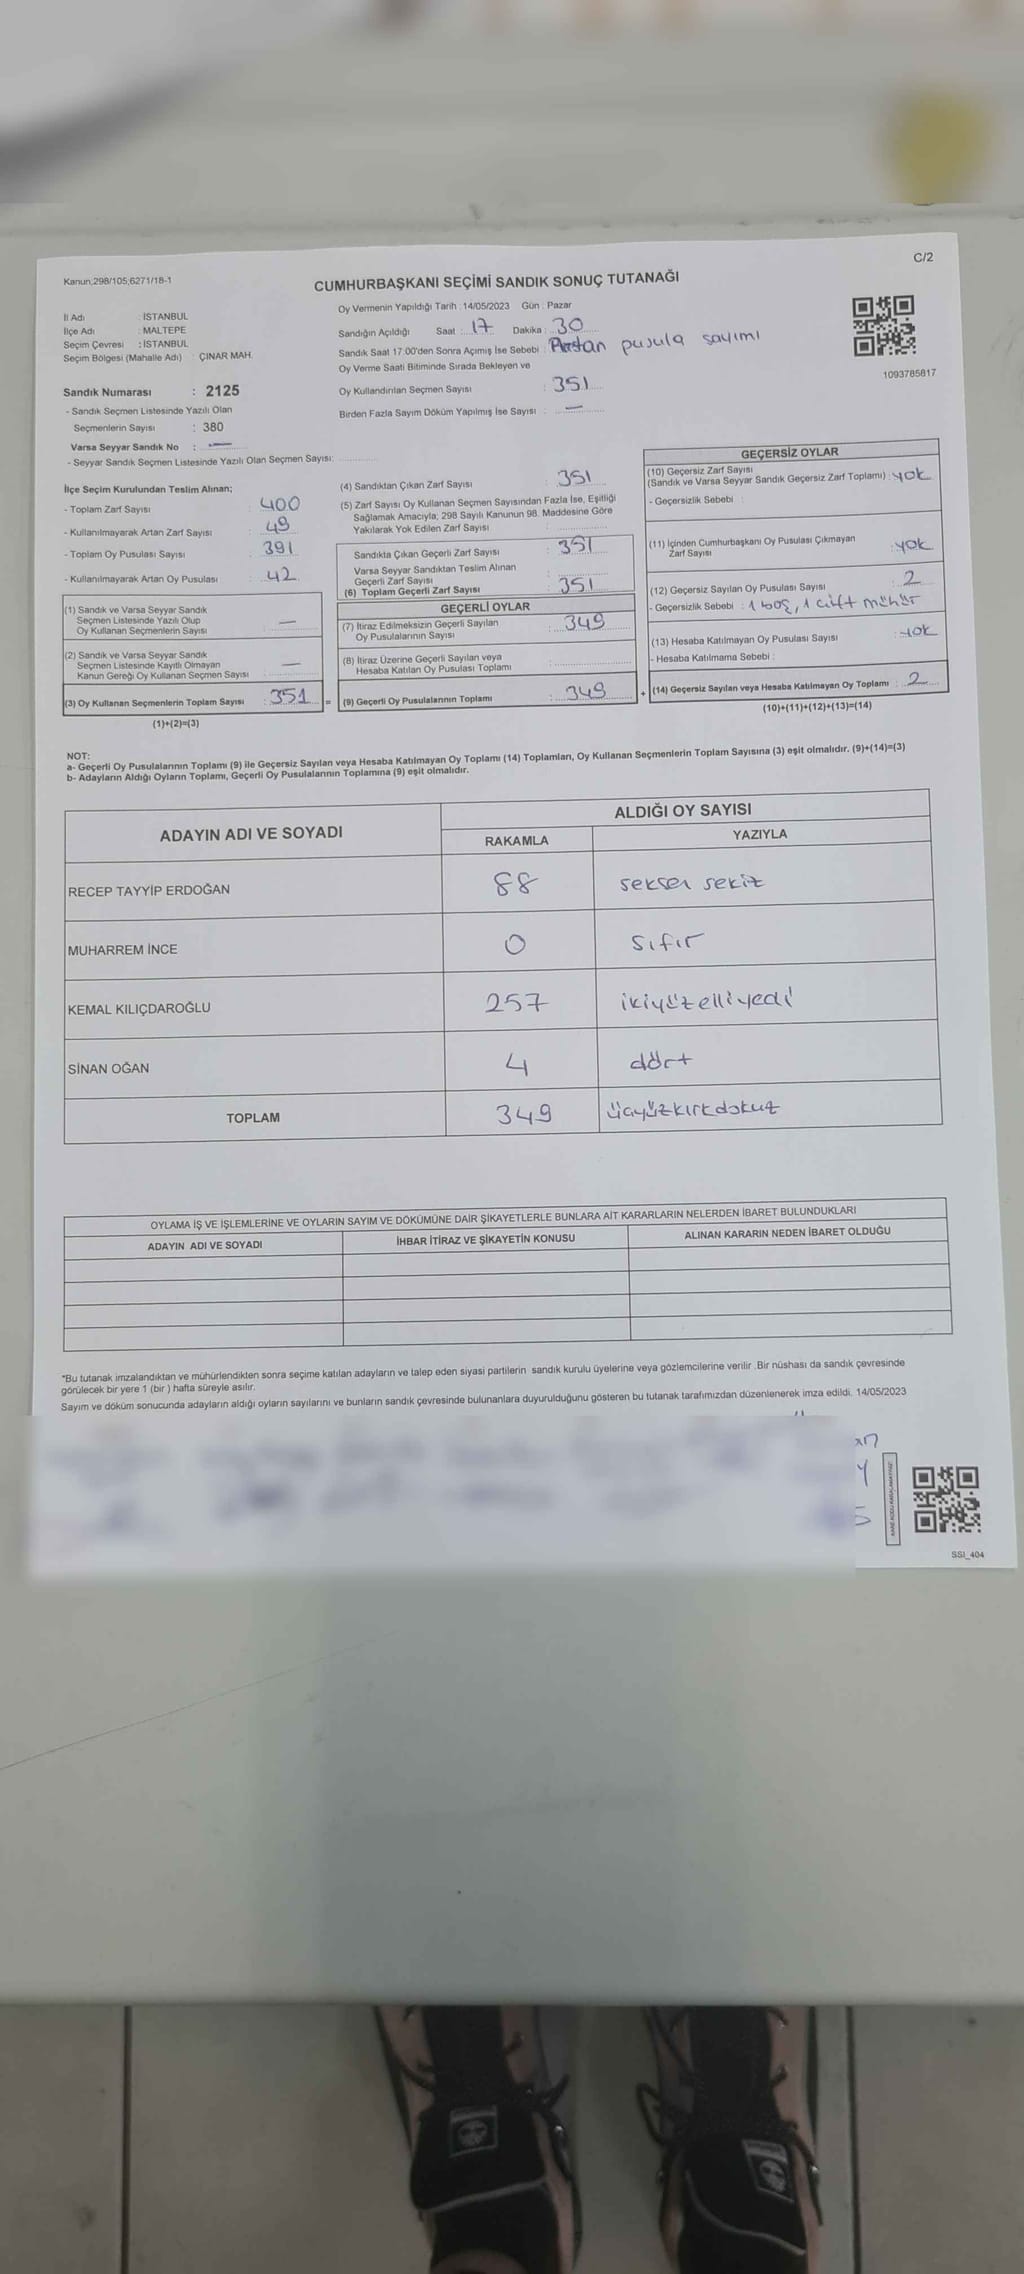 C/2
Kanun;298/105;6271/18-1
CUMHURBAŞKANI SEÇİMİ SANDIK SONUÇ TUTANAĞI
İl Adı : İSTANBUL
İlçe Adı : MALTEPE
Seçim Çevresi : İSTANBUL
Seçim Bölgesi (Mahalle Adı) : ÇINAR MAH.
Oy Vermenin Yapıldığı Tarih : 14/05/2023 Gün : Pazar
Sandığın Açıldığı Saat : 17 Dakika : 30
Sandık Saat 17:00'den Sonra Açımış İse Sebebi : pusula sayımı
Oy Verme Saati Bitiminde Sırada Bekleyen ve
Oy Kullandırılan Seçmen Sayısı : 351
Birden Fazla Sayım Döküm Yapılmış İse Sayısı : —
1093785817
Sandık Numarası : 2125
- Sandık Seçmen Listesinde Yazılı Olan
Seçmenlerin Sayısı : 380
Varsa Seyyar Sandık No : —
- Seyyar Sandık Seçmen Listesinde Yazılı Olan Seçmen Sayısı:
İlçe Seçim Kurulundan Teslim Alınan;
- Toplam Zarf Sayısı : 400
- Kullanılmayarak Artan Zarf Sayısı : 49
- Toplam Oy Pusulası Sayısı : 391
- Kullanılmayarak Artan Oy Pusulası : 42
(1) Sandık ve Varsa Seyyar Sandık
Seçmen Listesinde Yazılı Olup
Oy Kullanan Seçmenlerin Sayısı : —
(2) Sandık ve Varsa Seyyar Sandık
Seçmen Listesinde Kayıtlı Olmayan
Kanun Gereği Oy Kullanan Seçmen Sayısı : —
(3) Oy Kullanan Seçmenlerin Toplam Sayısı : 351 =
(1)+(2)=(3)
(4) Sandıktan Çıkan Zarf Sayısı : 351
(5) Zarf Sayısı Oy Kullanan Seçmen Sayısından Fazla İse, Eşitliği
Sağlamak Amacıyla; 298 Sayılı Kanunun 98. Maddesine Göre
Yakılarak Yok Edilen Zarf Sayısı :
Sandıkta Çıkan Geçerli Zarf Sayısı : 351
Varsa Seyyar Sandıktan Teslim Alınan
Geçerli Zarf Sayısı :
(6) Toplam Geçerli Zarf Sayısı : 351
GEÇERLİ OYLAR
(7) İtiraz Edilmeksizin Geçerli Sayılan
Oy Pusulalarının Sayısı : 349
(8) İtiraz Üzerine Geçerli Sayılan veya
Hesaba Katılan Oy Pusulası Toplamı :
(9) Geçerli Oy Pusulalarının Toplamı : 349 +
GEÇERSİZ OYLAR
(10) Geçersiz Zarf Sayısı
(Sandık ve Varsa Seyyar Sandık Geçersiz Zarf Toplamı) : yok
- Geçersizlik Sebebi :
(11) İçinden Cumhurbaşkanı Oy Pusulası Çıkmayan
Zarf Sayısı : yok
(12) Geçersiz Sayılan Oy Pusulası Sayısı : 2
- Geçersizlik Sebebi : 1 boş, 1 çift mühür
(13) Hesaba Katılmayan Oy Pusulası Sayısı : yok
- Hesaba Katılmama Sebebi :
(14) Geçersiz Sayılan veya Hesaba Katılmayan Oy Toplamı : 2
(10)+(11)+(12)+(13)=(14)
NOT:
a- Geçerli Oy Pusulalarının Toplamı (9) ile Geçersiz Sayılan veya Hesaba Katılmayan Oy Toplamı (14) Toplamları, Oy Kullanan Seçmenlerin Toplam Sayısına (3) eşit olmalıdır. (9)+(14)=(3)
b- Adayların Aldığı Oyların Toplamı, Geçerli Oy Pusulalarının Toplamına (9) eşit olmalıdır.
ADAYIN ADI VE SOYADI ALDIĞI OY SAYISI
RAKAMLA YAZIYLA
RECEP TAYYİP ERDOĞAN 88 seksen sekiz
MUHARREM İNCE 0 sıfır
KEMAL KILIÇDAROĞLU 257 ikiyüzelliyedi
SİNAN OĞAN 4 dört
TOPLAM 349 üçyüzkırkdokuz
OYLAMA İŞ VE İŞLEMLERİNE VE OYLARIN SAYIM VE DÖKÜMÜNE DAİR ŞİKAYETLERLE BUNLARA AİT KARARLARIN NELERDEN İBARET BULUNDUKLARI
ADAYIN ADI VE SOYADI İHBAR İTİRAZ VE ŞİKAYETİN KONUSU ALINAN KARARIN NEDEN İBARET OLDUĞU
*Bu tutanak imzalandıktan ve mühürlendikten sonra seçime katılan adayların ve talep eden siyasi partilerin sandık kurulu üyelerine veya gözlemcilerine verilir .Bir nüshası da sandık çevresinde
görülecek bir yere 1 (bir ) hafta süreyle asılır.
Sayım ve döküm sonucunda adayların aldığı oyların sayılarını ve bunların sandık çevresinde bulunanlara duyurulduğunu gösteren bu tutanak tarafımızdan düzenlenerek imza edildi. 14/05/2023
SSI_404